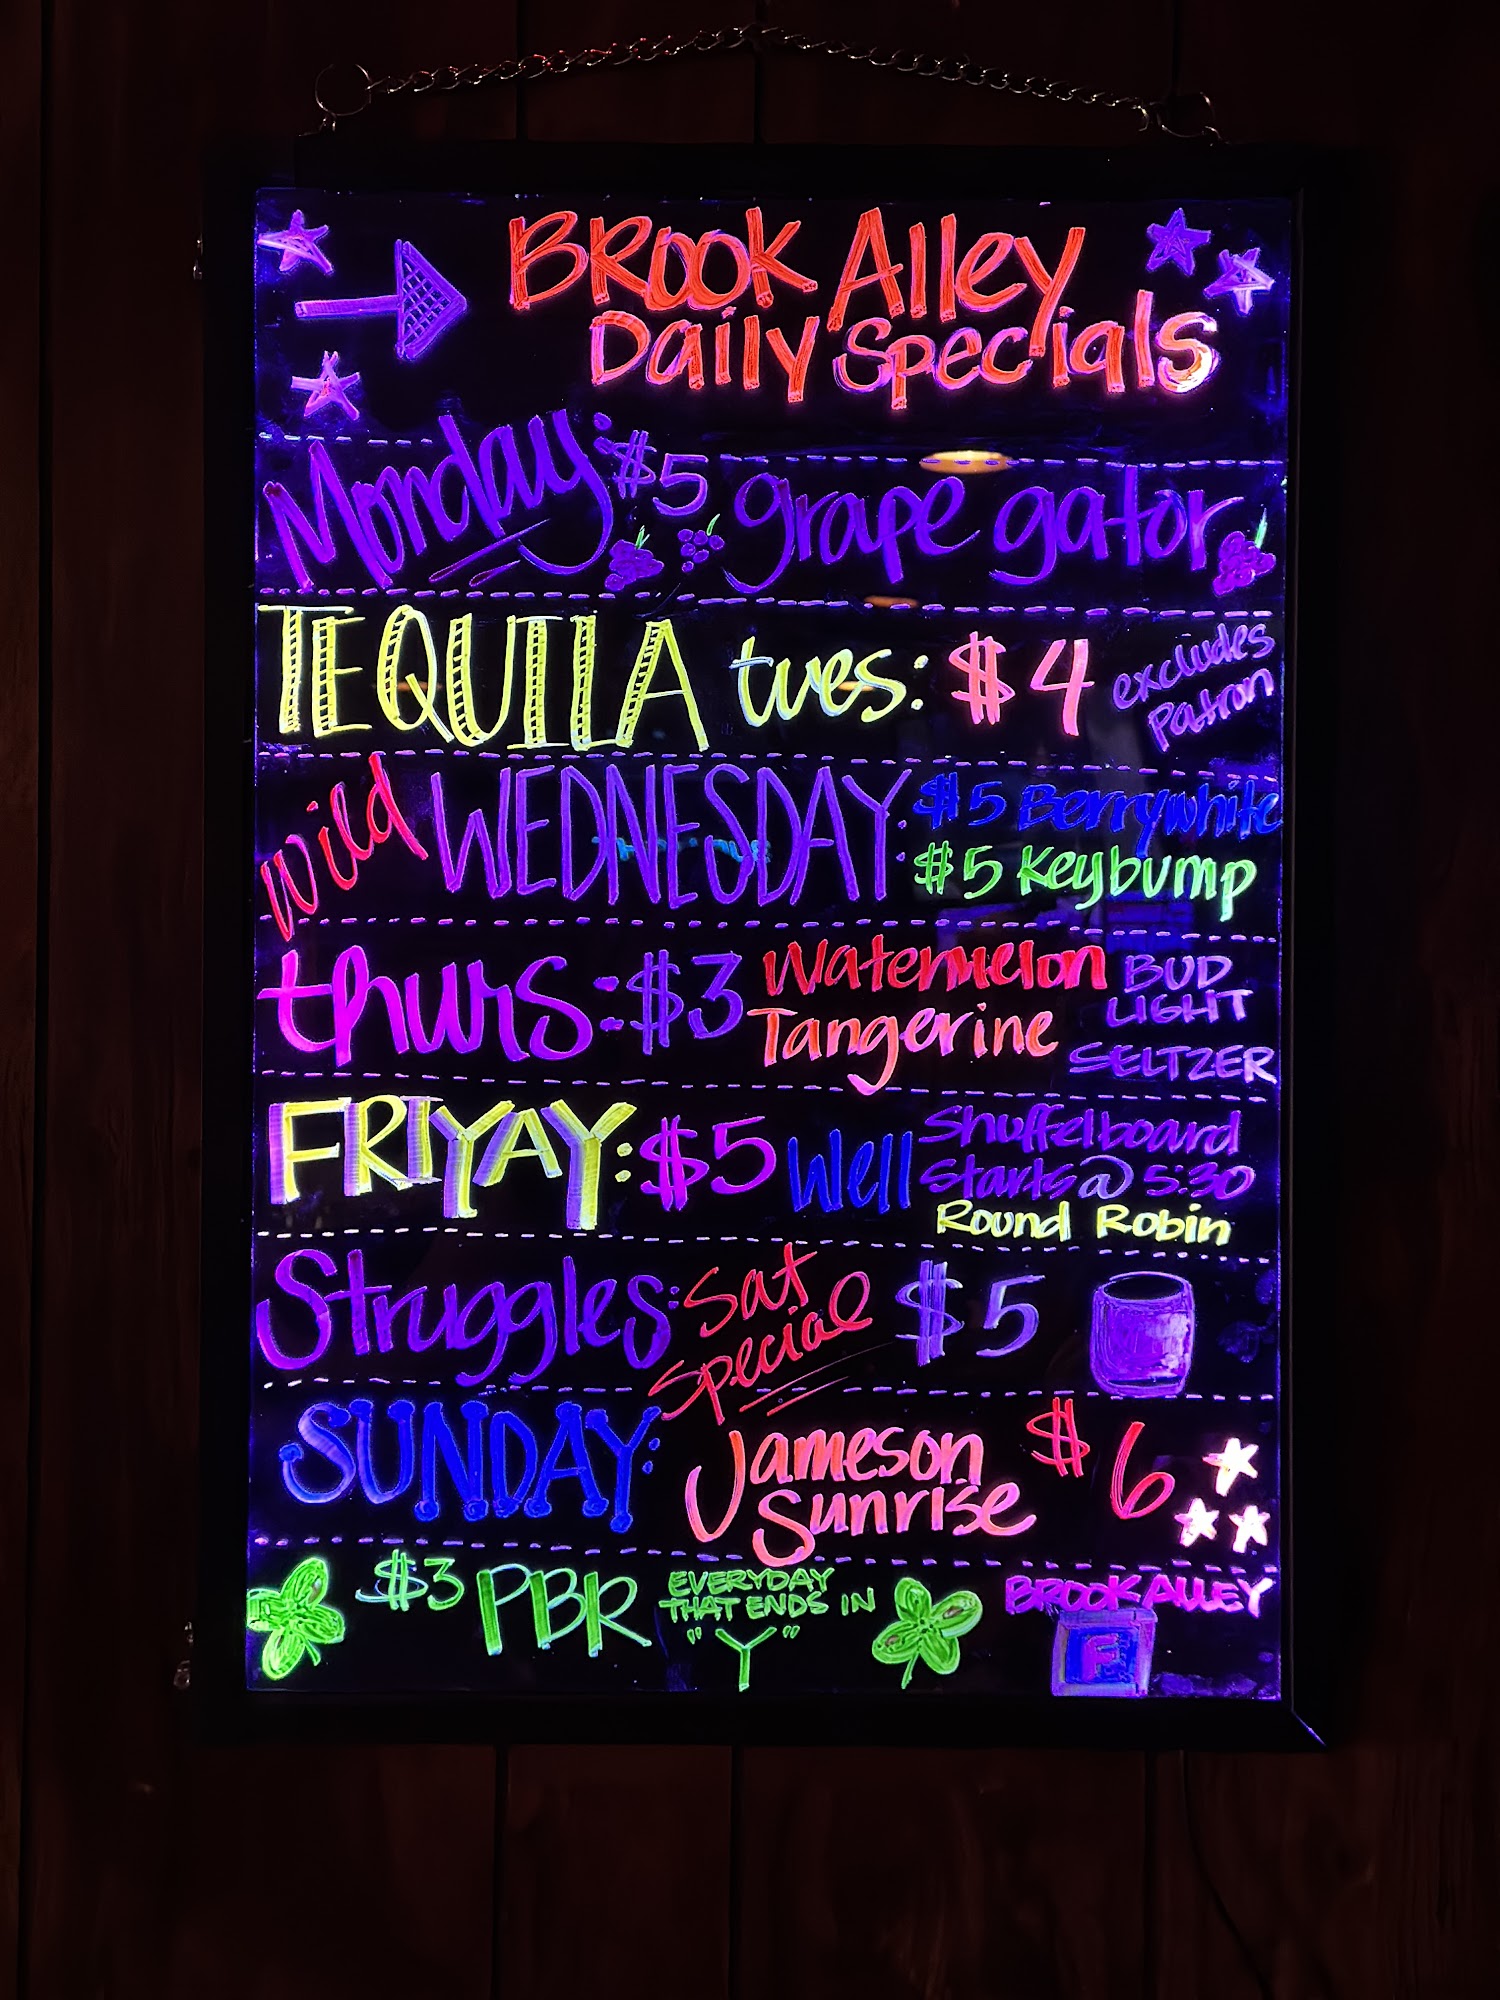 BROOK Alley
Daily Specials
Monday: $5 grape gator
TEQUILA tues: $4 excludes Patron
Wild WEDNESDAY: $5 Berrywhite
$5 Keybump
thurs: $3 Watermelon Tangerine BUD LIGHT SELTZER
FRIYAY: $5 Well Shuffelboard Starts @ 5:30
Round Robin
Struggles: Sat Special $5
SUNDAY: Jameson Sunrise $6
$3 PBR EVERYDAY THAT ENDS IN "Y"
BROOK ALLEY
F